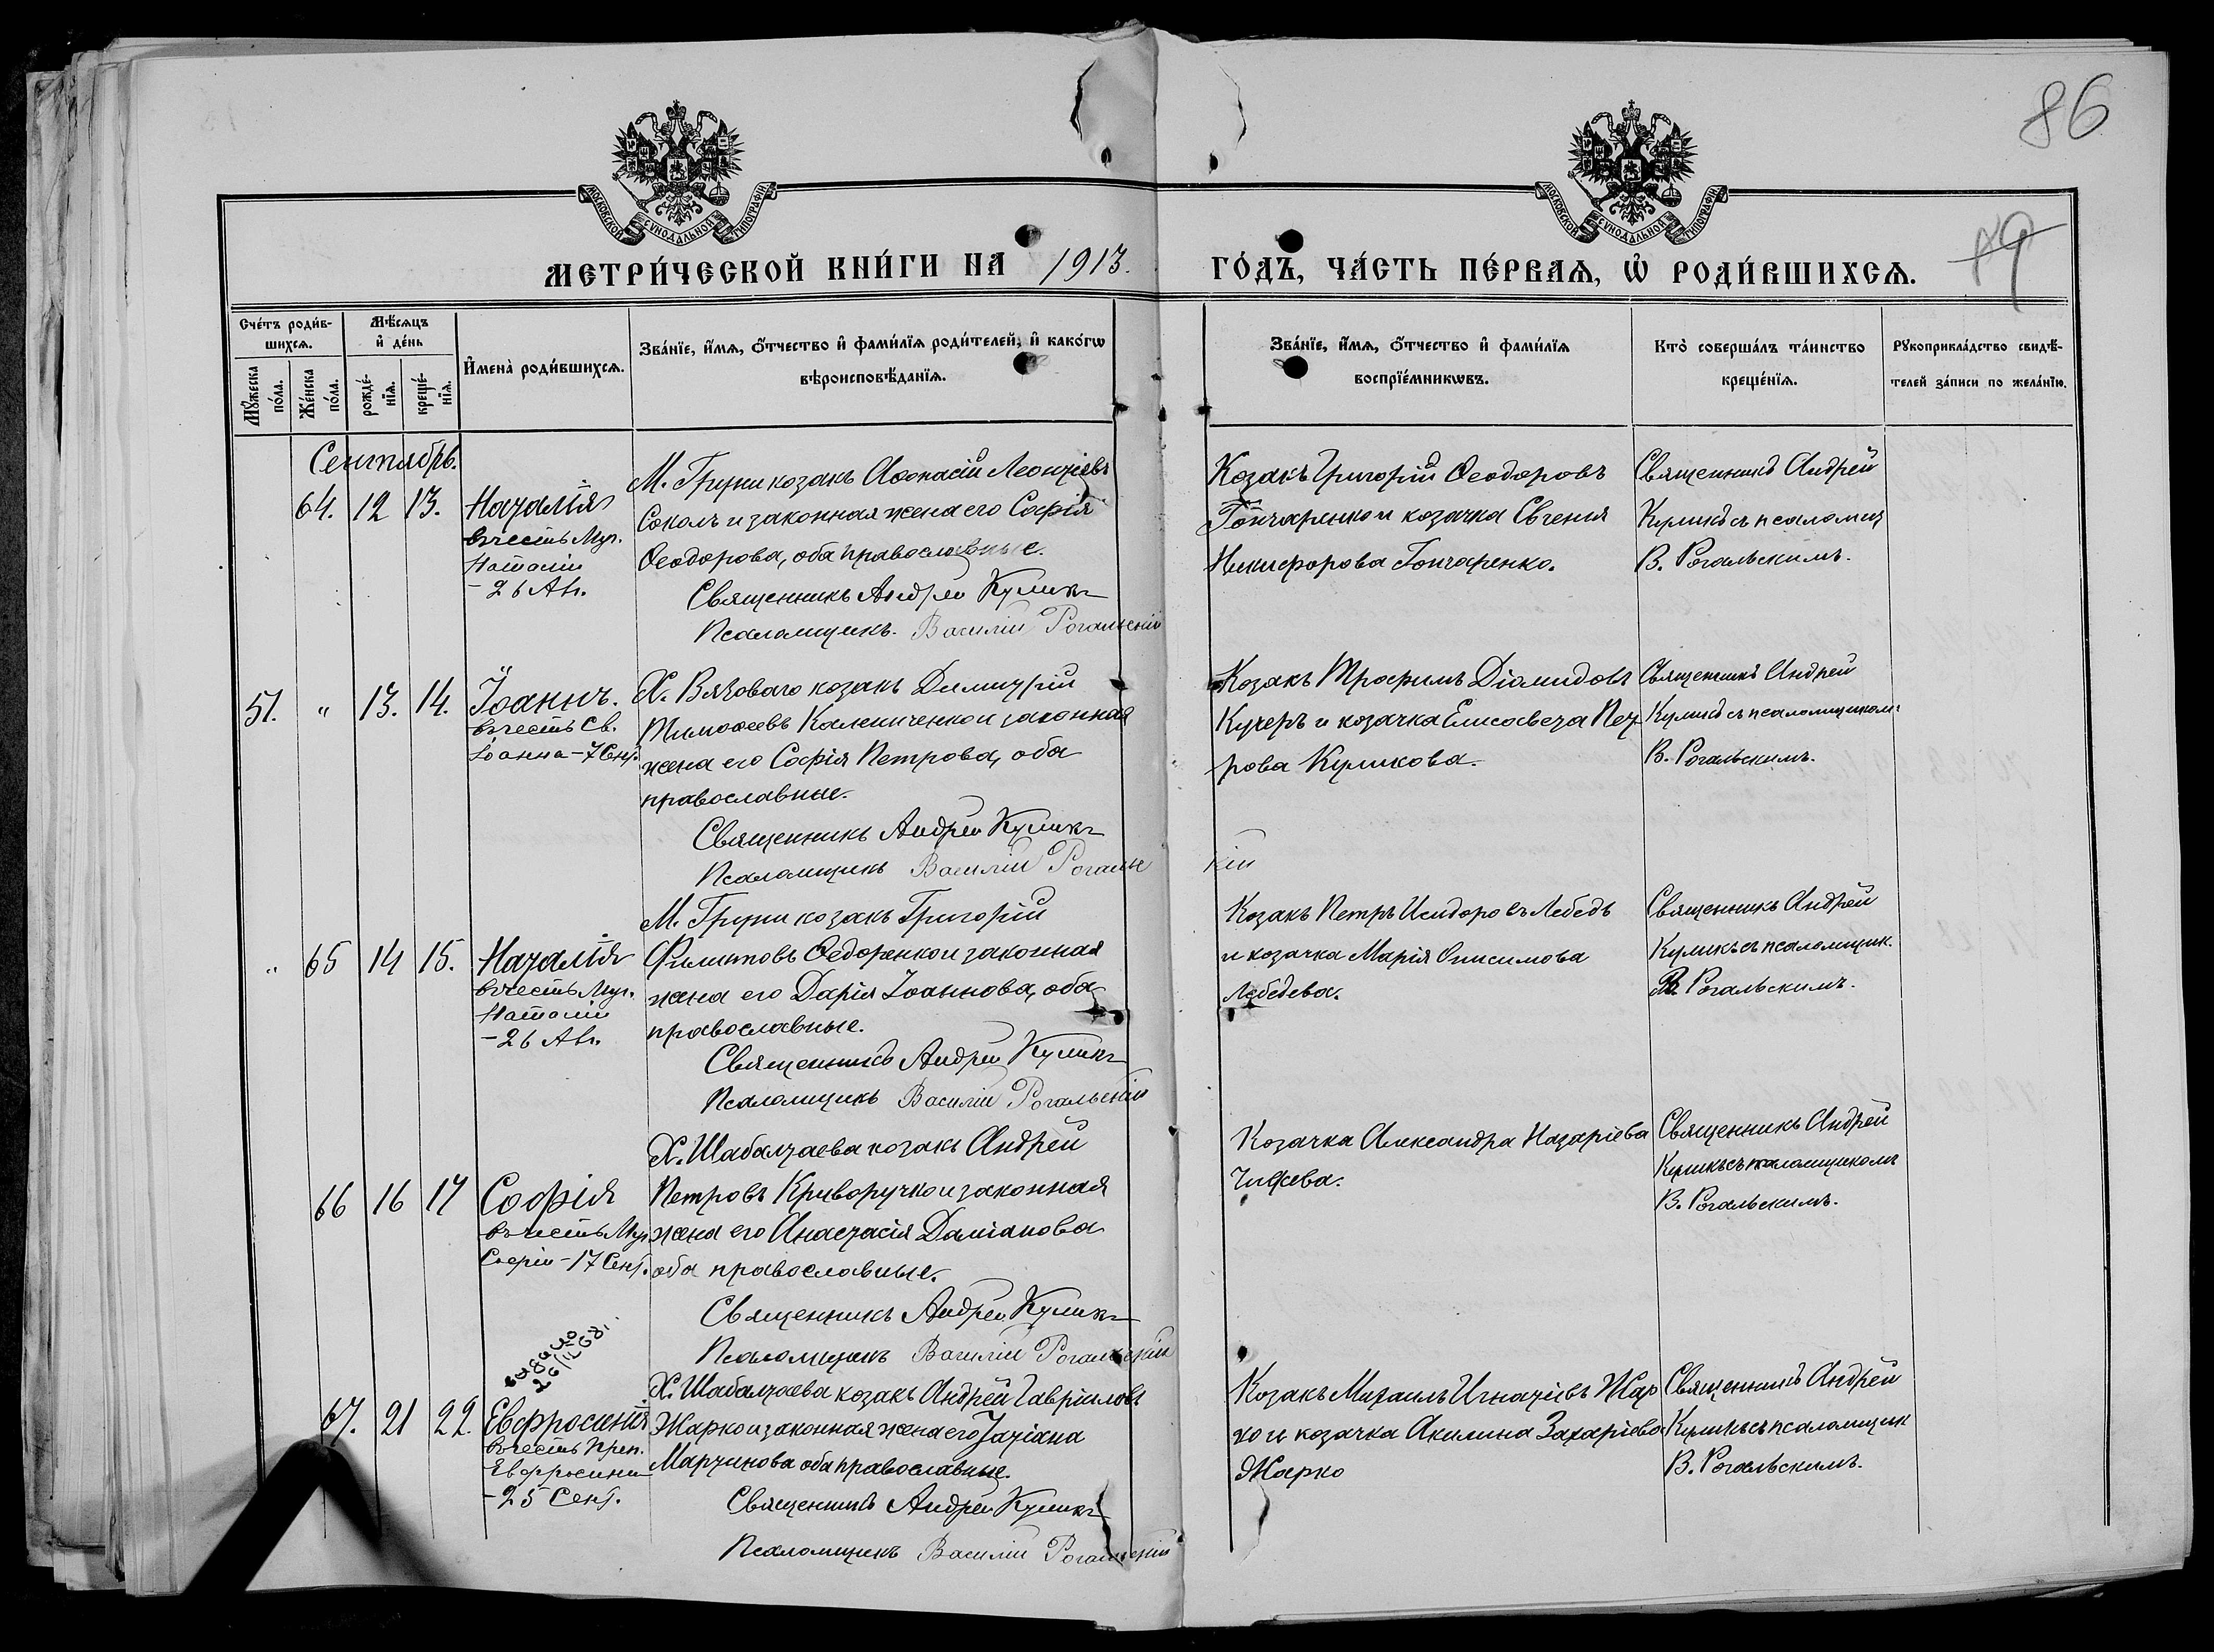 86
МОСКОВСКОЙ СѴНОДАЛЬНОЙ ТИПОГРАФІИ
МОСКОВСКОЙ СѴНОДАЛЬНОЙ ТИПОГРАФІИ
МЕТРИ́ЧЕСКОЙ КНИ́ГИ НА 1913. ГО́ДЪ, ЧА́СТЬ ПЕ́РВАѦ, Ѡ҆ РОДИ́ВШИХСѦ.
Сче́тъ роди́в-
шихсѧ.
Мꙋ́жеска
по́ла.
Же́нска
по́ла.
Мѣ́сѧцъ
и҆ де́нь
рожде́-
нїѧ.
креще́-
нїѧ.
И҆мена̀ роди́вшихсѧ.
Зва́нїе, и҆́мѧ, ѻ҆́тчество и҆ фами́лїѧ роди́телей, и҆ како́гѡ
вѣроисповѣ́данїѧ.
Зва́нїе, и҆́мѧ, ѻ҆́тчество и҆ фами́лїѧ
воспрїе́мникѡвъ.
Кто̀ соверша́лъ та́инство
креще́нїѧ.
Рꙋкоприкла́дство свидѣ́-
телей за́писи по жела́нїю.
Сентябрь.
64. 12 13. Наталія
въ честь Муч.
Наталіи
- 26 Авг.
М. Груни козакъ Аѳонасій Леонтіевъ
Соколъ и законная жена его Софія
Ѳеодорова, оба православные.
Священникъ Андрей Куликъ
Псаломщикъ. Василій Рогальскій
Козакъ Григорій Ѳеодоровъ
Гончаренко и козачка Евгенія
Никифорова Гончаренко.
Священникъ Андрей
Куликъ съ псаломщ
В. Рогальскимъ.
51. " 13. 14. Іоаннъ.
въ честь Св.
Іоанна - 7 Сент.
Х. Вязоваго козакъ Димитрій
Тимоѳеевъ Калениченко и законная
жена его Софія Петрова, оба
православные.
Священникъ Андрей Куликъ
Псаломщикъ Василій Рогальскій
Козакъ Трофимъ Діамидовъ
Кучеръ и козачка Елисавета Пет
рова Куликова.
Священникъ Андрей
Куликъ съ псаломщикомъ
В. Рогальскимъ.
" 65 14 15. Наталія
въ честь Муч.
Наталіи
- 26 Авг.
М. Груни козакъ Григорій
Филиповъ Ѳедоренко и законная
жена его Дарія Іоаннова, оба
православные.
Священникъ Андрей Куликъ
Псаломщикъ Василій Рогальскій
Козакъ Петръ Исидоровъ Лебедь
и козачка Марія Онисимова
Лебедева.
Священникъ Андрей
Куликъ съ псаломщик.
В. Рогальскимъ.
66 16 17 Софія
въ честь Муч.
Софіи - 17 Сент.
Х. Шабалтаева козакъ Андрей
Петровъ Криворучко и законная
жена его Анастасія Даміанова
оба православные.
Священникъ Андрей Куликъ
Псаломщикъ Василій Рогальскій
Козачка Александра Назаріева
Священникъ Андрей
Куликъ съ псаломщикомъ
В. Рогальскимъ.
видано
67. 21 22. Евфросинія
въ честь Преп.
Евфросиніи
- 25 Сент.
Х. Шабалтаева козакъ Андрей Гавріиловъ
Жарко и законная жена его Татіана
Мартинова оба православные.
Священникъ Андрей Куликъ
Псаломщикъ Василій Рогальскій
Козакъ Михаилъ Игнатіевъ Жар
ко и козачка Акилина Захаріева
Жарко
Священникъ Андрей
Куликъ съ псаломщик
В. Рогальскимъ.